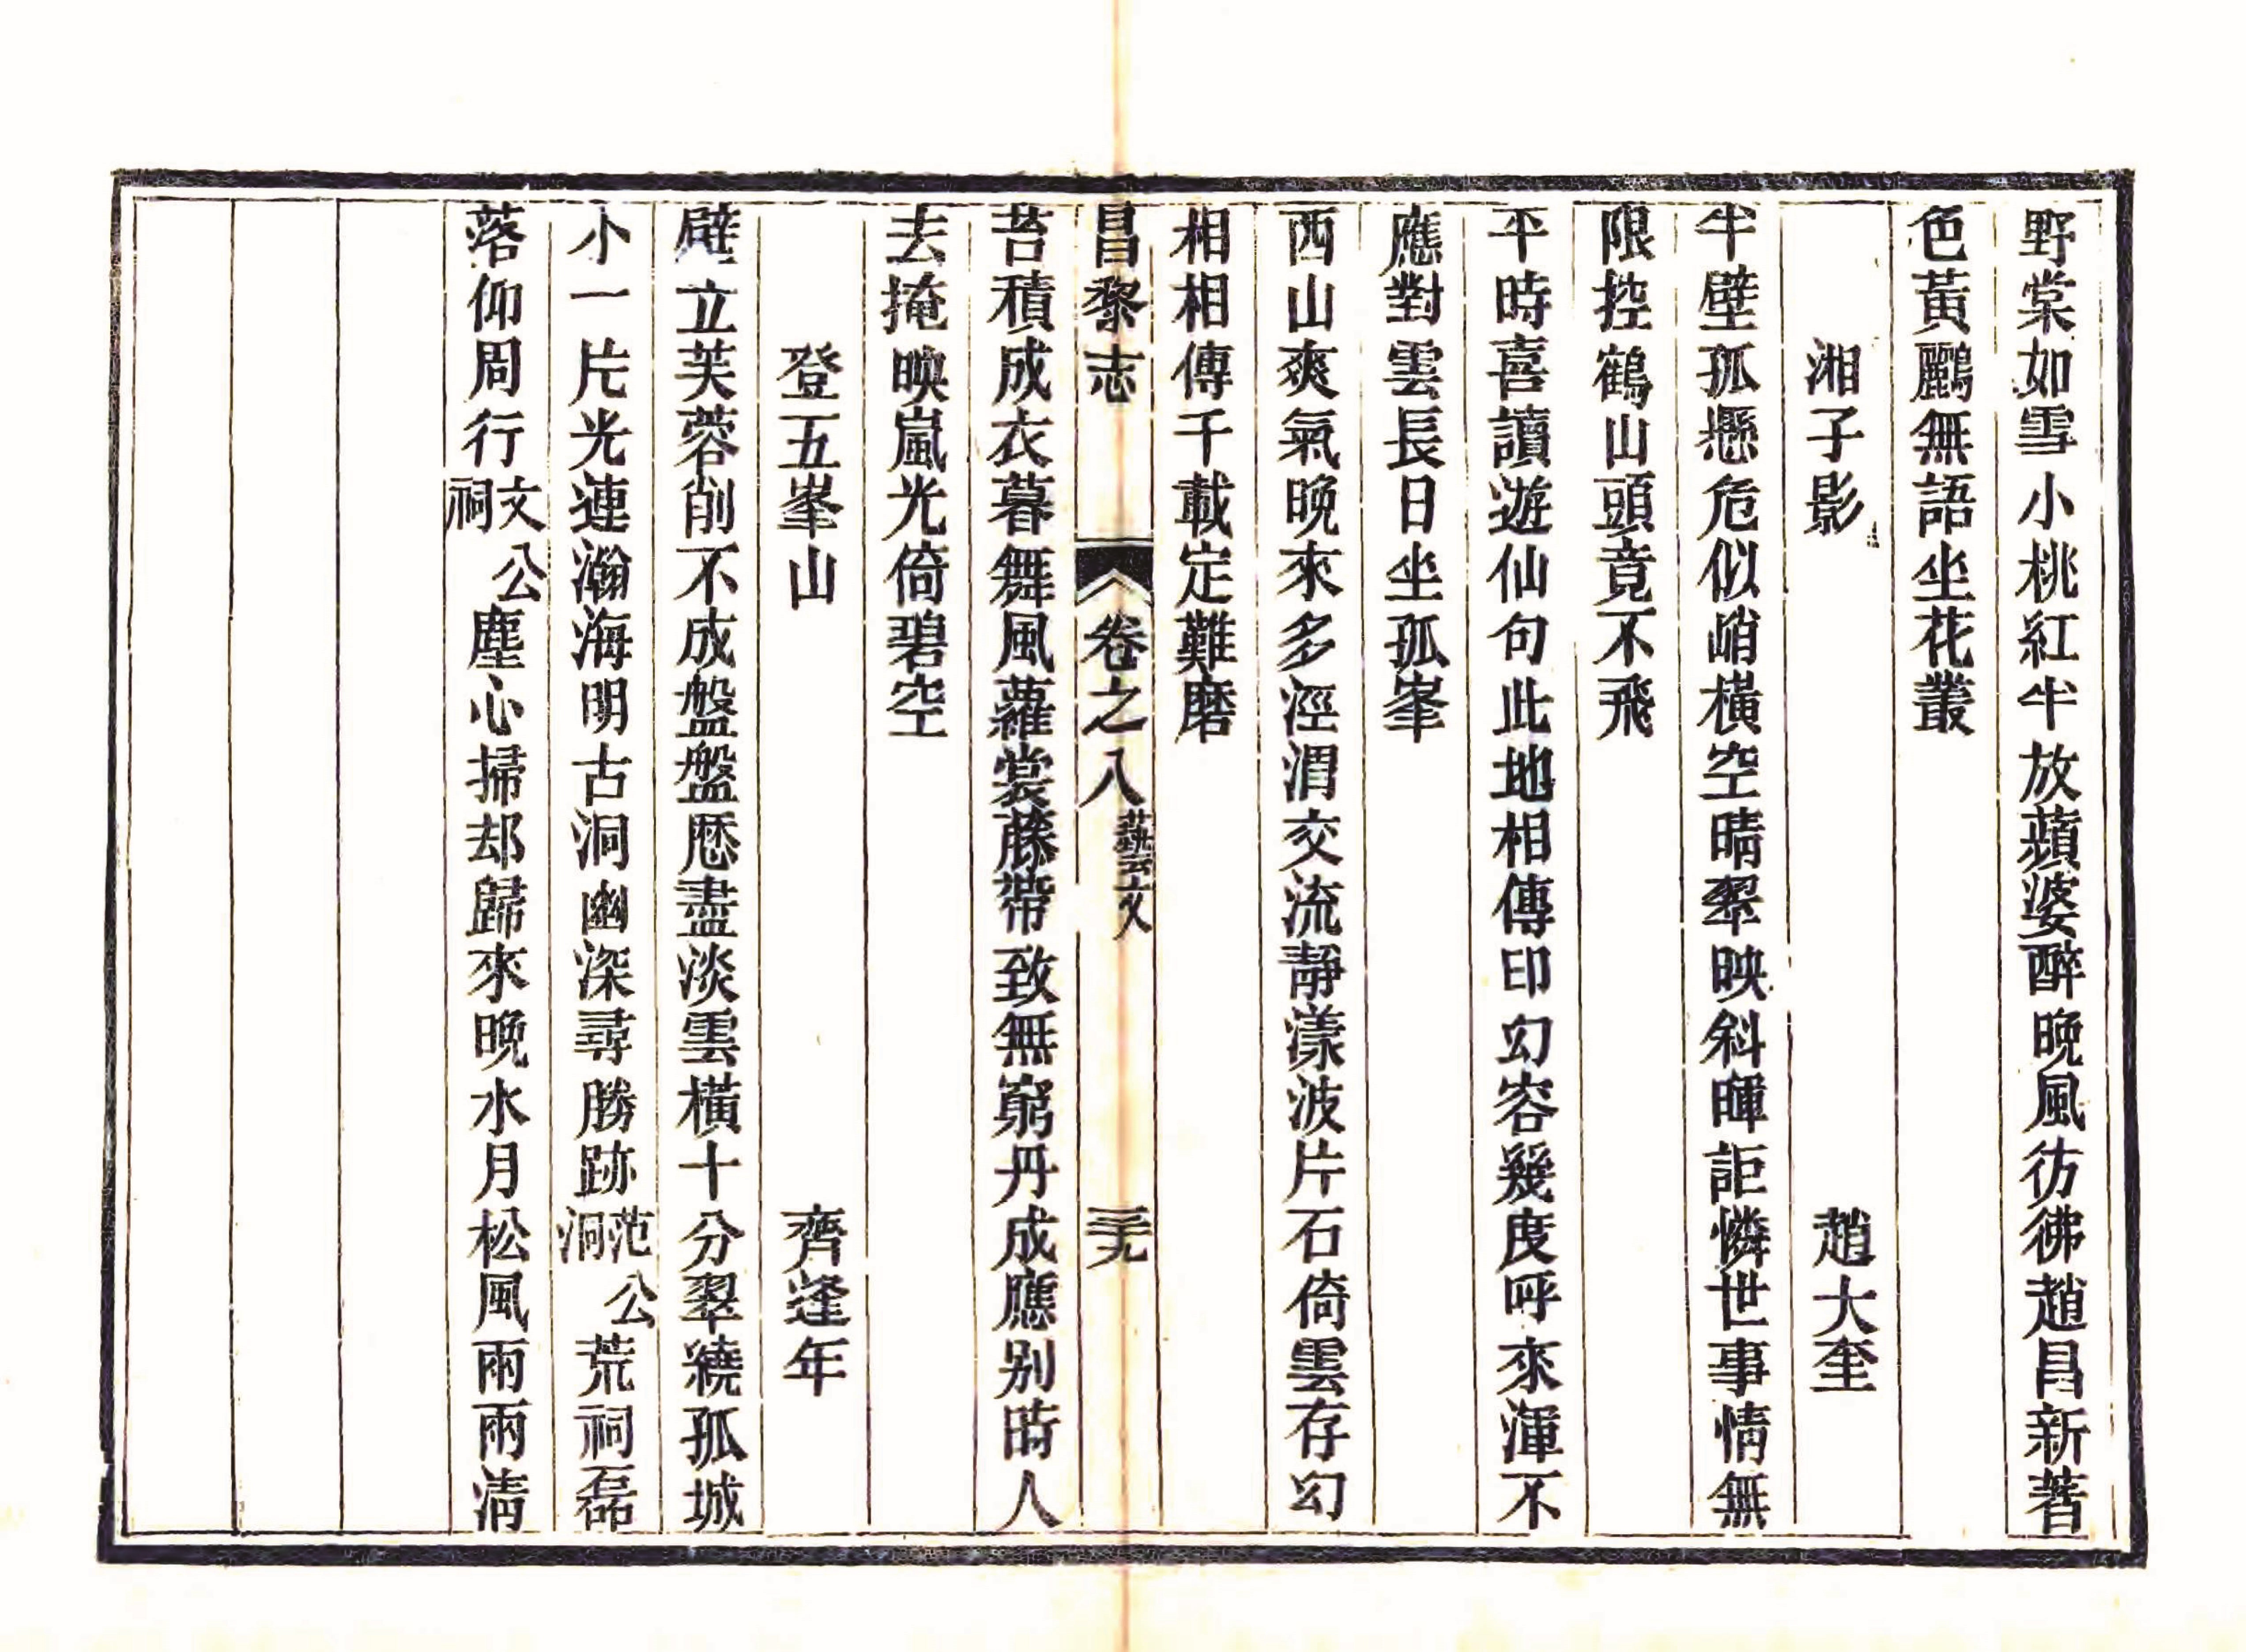 野棠如雪小桃紅半放蘋婆醉晚風彷彿趙昌新著
色黃鸝無語坐花叢
湘子影 趙大奎
半壁孤懸危似峭橫空晴翠映斜暉詎憐世事情無
限控鶴山頭竟不飛
平時喜讀遊仙句此地相傳印幻容幾度呼來渾不
應對雲長日坐孤峯
西山爽氣晚來多涇渭交流靜漾波片石倚雲存幻
相相傳千載定難磨
昌黎志 卷之八 藝文 三十九
苔積成衣暮舞風蘿裳藤帶致無窮丹成應別時人
去掩映嵐光倚碧空
登五峯山 齊逢年
壁立芙蓉削不成盤盤歷盡淡雲橫十分翠繞孤城
小一片光連瀚海明古洞幽深尋勝跡范公洞荒祠磊
落仰周行文公祠塵心掃却歸來晚水月松風兩兩清